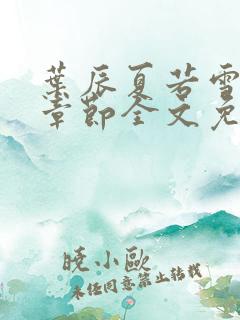 葉辰夏若雪
章節全文免
曉小歐
未经同意禁止转载